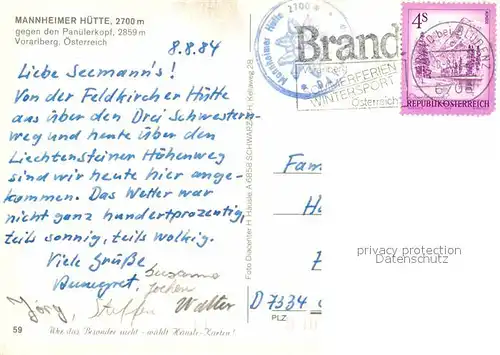 MANNHEIMER HÜTTE, 2700 m
gegen den Panülerkopf, 2859 m
Vorarlberg, Österreich
8.8.84
Liebe Seemann's!
Von der Feldkircher Hütte
aus über den Drei Schwestern-
weg und heute über den
Liechtensteiner Höhenweg
sind wir heute hier ange-
kommen. Das Wetter war
nicht ganz hundertprozentig,
teils sonnig, teils wolkig.
Viele Grüße
Annegret, Susanne
Jochen
Jörg, Steffen Walter
59
Wer das Besondere sucht - wählt Häusle-Karten!
Foto Diacenter H. Häusle A 6858 SCHWARZACH, Kellaweg 28
Mannheimer Hütte 2700 m
Brand
Vorarlberg
WINTERSPORT
Österreich
4S
REPUBLIK ÖSTERREICH
Fam
D 7334
PLZ
privacy protection
www.ansichtskartenversand.com